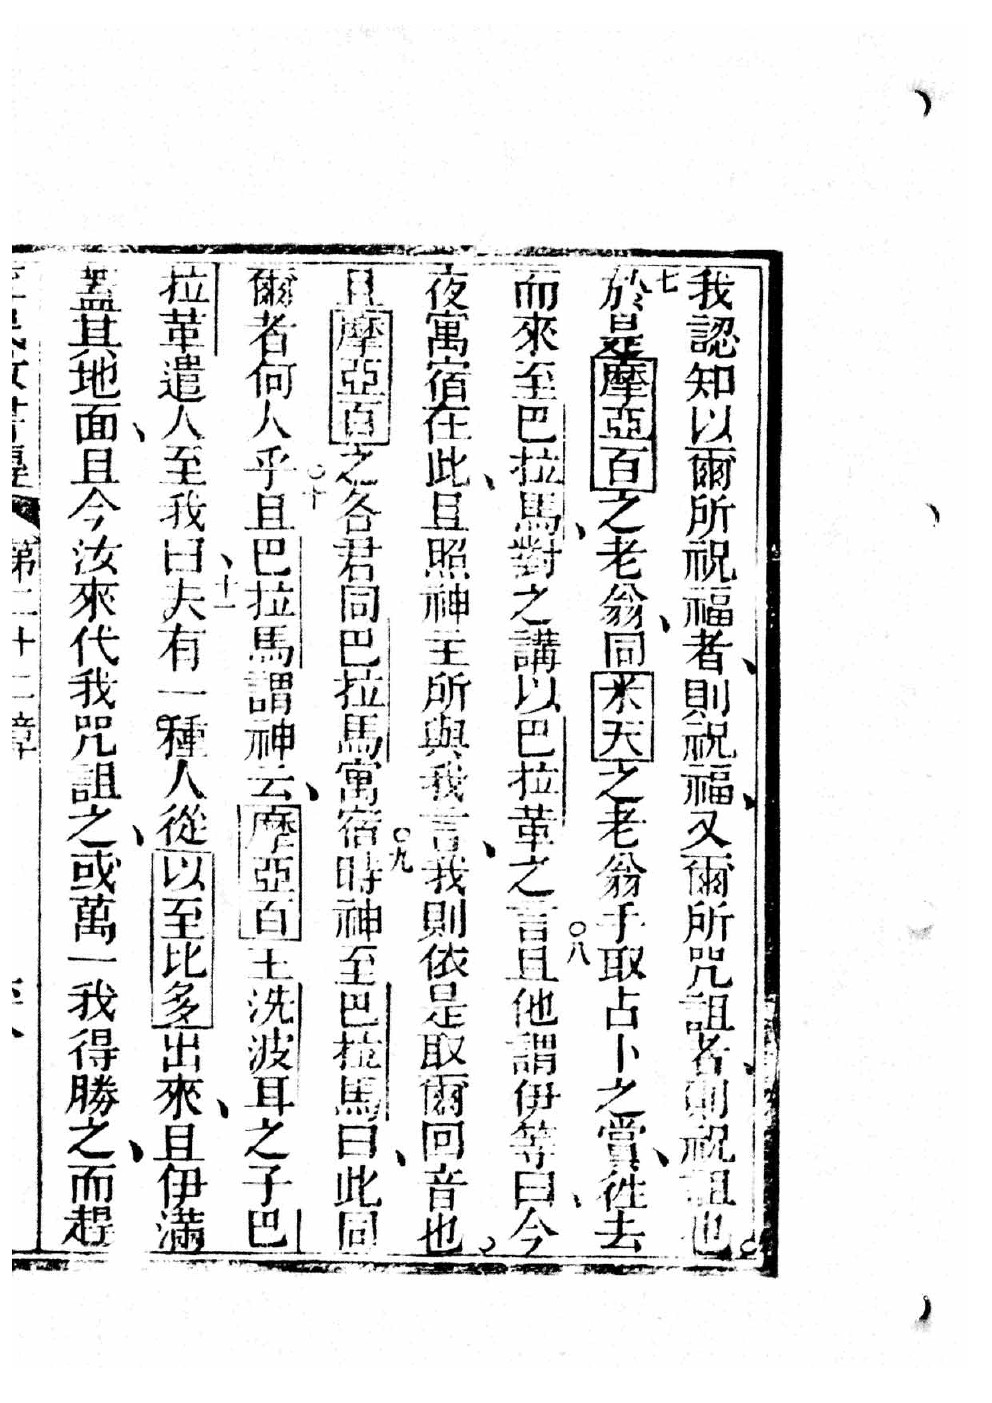 我認知以爾所祝福者、則祝福、又爾所咒詛者、則祝詛也。
七於是摩亞百之老翁、同米天之老翁手取占卜之賞、徃去
而來至巴拉馬、對之講以巴拉革之言。八且他謂伊等曰、今
夜寓宿在此、且照神主所與我言、我則依是取爾回音也。
且摩亞百之各君同巴拉馬寓宿。九時神至巴拉馬曰、此同
爾者何人乎。十且巴拉馬謂神云、摩亞百王洗波耳之子巴
拉革遣人至我曰、十一夫有一種人從以至比多出來、且伊滿
蓋其地面、且今汝來代我咒詛之、或萬一我得勝之、而趕
第二十二章